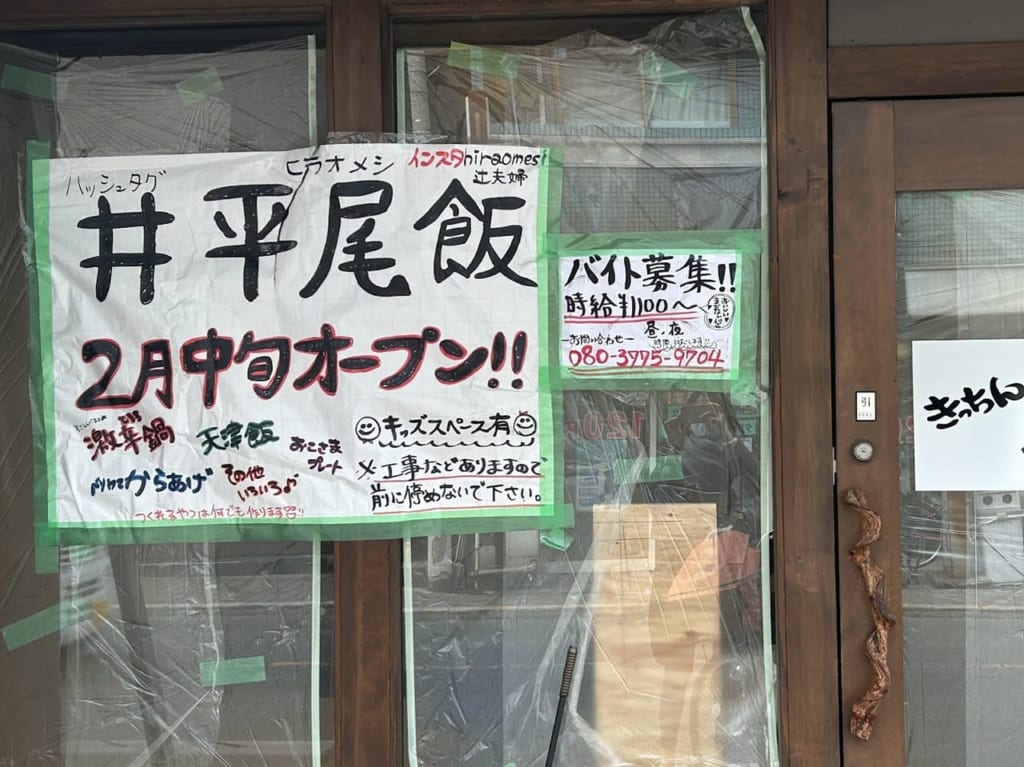 ハッシュタグ
ヒラオメシ
インスタhiraomesi
辻夫婦
井平尾飯
2月中旬オープン!!
激辛鍋
天津飯
おこさま
プレート
からあげ
その他
いろいろ♪
つくれるやつは何でも作ります!!
キッズスペース有
※工事などありますので
前に停めないで下さい。
バイト募集!!
時給¥1100～
昼、夜
ーお問い合わせー
080-3775-9704
引
きっちん